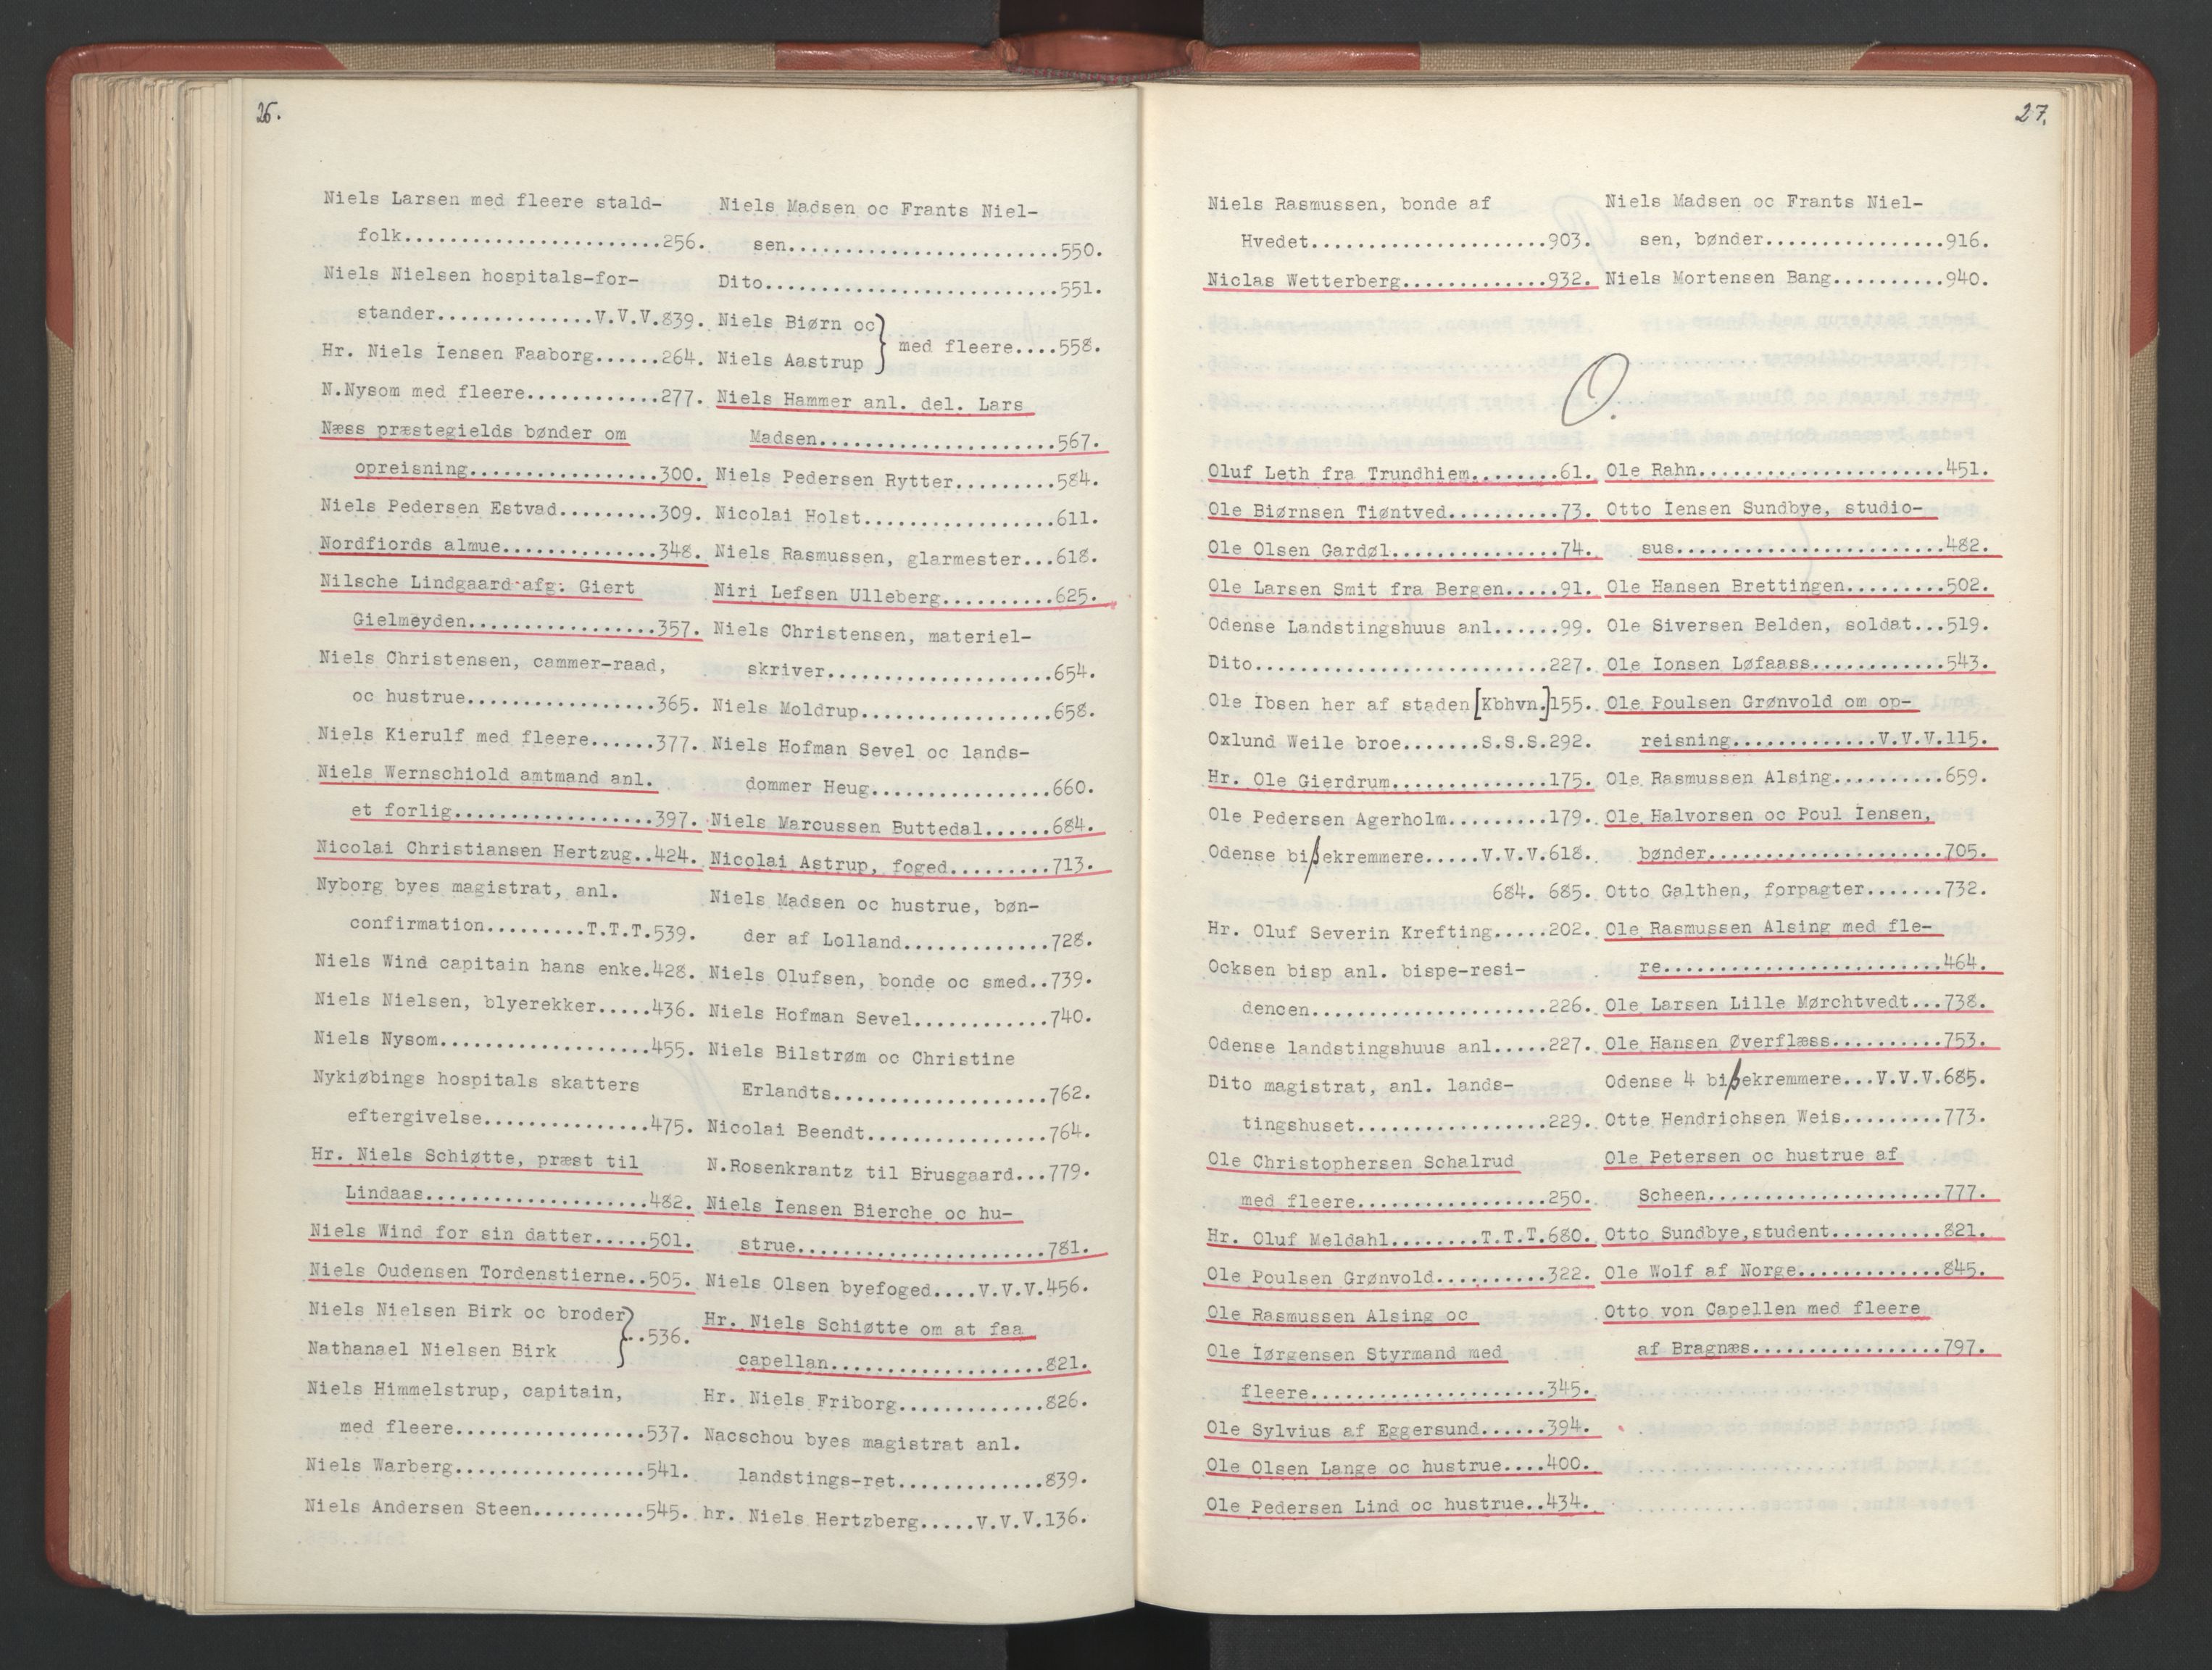 26.
Niels Larsen med fleere stald-
folk.......................256.
Niels Nielsen hospitals-for-
stander..............V.V.V.839.
Hr. Niels Iensen Faaborg......264.
N.Nysom med fleere............277.
Næss præstegields bønder om
opreisning.................300.
Niels Pedersen Estvad.........309.
Nordfiords almue..............348.
Nilsche Lindgaard afg. Giert
Gielmeyden.................357.
Niels Christensen, cammer-raad,
oc hustrue.................365.
Niels Kierulf med fleere......377.
Niels Wernschiold amtmand anl.
et forlig..................397.
Nicolai Christiansen Hertzug..424.
Nyborg byes magistrat, anl.
confirmation.........T.T.T.539.
Niels Wind capitain hans enke.428.
Niels Nielsen, blyerekker.....436.
Niels Nysom...................455.
Nykiøbings hospitals skatters
eftergivelse...............475.
Hr. Niels Schiøtte, præst til
Lindaas....................482.
Niels Wind for sin datter.....501.
Niels Oudensen Tordenstierne..505.
Niels Nielsen Birk oc broder
}..536.
Nathanael Nielsen Birk
Niels Himmelstrup, capitain,
med fleere.................537.
Niels Warberg.................541.
Niels Andersen Steen..........545.
Niels Madsen oc Frants Niel-
sen........................550.
Dito..........................551.
Niels Biørn oc
} med fleere....558.
Niels Aastrup
Niels Hammer anl. del. Lars
Madsen.....................567.
Niels Pedersen Rytter.........584.
Nicolai Holst.................611.
Niels Rasmussen, glarmester...618.
Niri Lefsen Ulleberg..........625.
Niels Christensen, materiel-
skriver....................654.
Niels Moldrup.................658.
Niels Hofman Sevel oc lands-
dommer Heug................660.
Niels Marcussen Buttedal......684.
Nicolai Astrup, foged.........713.
Niels Madsen oc hustrue, bøn-
der af Lolland.............728.
Niels Olufsen, bonde oc smed..739.
Niels Hofman Sevel............740.
Niels Bilstrøm oc Christine
Erlandts...................762.
Nicolai Beendt................764.
N.Rosenkrantz til Brusgaard...779.
Niels Iensen Bierche oc hu-
strue......................781.
Niels Olsen byefoged....V.V.V.456.
Hr. Niels Schiøtte om at faa
capellan...................821.
Hr. Niels Friborg.............826.
Nacschou byes magistrat anl.
landstings-ret.............839.
hr. Niels Hertzberg.....V.V.V.136.
27.
Niels Rasmussen, bonde af
Hvedet.....................903.
Niclas Wetterberg.............932.
Niels Madsen oc Frants Niel-
sen, bønder................916.
Niels Mortensen Bang..........940.
O.
Oluf Leth fra Trundhiem........61.
Ole Biørnsen Tiøntved..........73.
Ole Olsen Gardøl...............74.
Ole Larsen Smit fra Bergen.....91.
Odense Landstingshuus anl......99.
Dito..........................227.
Ole Ibsen her af staden [Kbhvn.]155.
Oxlund Weile broe.......S.S.S.292.
Hr. Ole Gierdrum..............175.
Ole Pedersen Agerholm.........179.
Odense bißekremmere.....V.V.V.618.
684. 685.
Hr. Oluf Severin Krefting.....202.
Ocksen bisp anl. bispe-resi-
dencen.....................226.
Odense landstingshuus anl.....227.
Dito magistrat, anl. lands-
tingshuset.................229.
Ole Christophersen Schalrud
med fleere.................250.
Hr. Oluf Meldahl........T.T.T.680.
Ole Poulsen Grønvold..........322.
Ole Rasmussen Alsing oc
Ole Iørgensen Styrmand med
fleere.....................345.
Ole Sylvius af Eggersund......394.
Ole Olsen Lange oc hustrue....400.
Ole Pedersen Lind oc hustrue..434.
Ole Rahn......................451.
Otto Iensen Sundbye, studio-
sus........................482.
Ole Hansen Brettingen.........502.
Ole Siversen Belden, soldat...519.
Ole Ionsen Løfaass............543.
Ole Poulsen Grønvold om op-
reisning.............V.V.V.115.
Ole Rasmussen Alsing..........659.
Ole Halvorsen oc Poul Iensen,
bønder.....................705.
Otto Galthen, forpagter.......732.
Ole Rasmussen Alsing med fle-
re.........................464.
Ole Larsen Lille Mørchtvedt...738.
Ole Hansen Øverflæss..........753.
Odense 4 bißekremmere...V.V.V.685.
Otte Hendrichsen Weis.........773.
Ole Petersen oc hustrue af
Scheen.....................777.
Otto Sundbye,student..........821.
Ole Wolf af Norge.............845.
Otto von Capellen med fleere
af Bragnæs.................797.